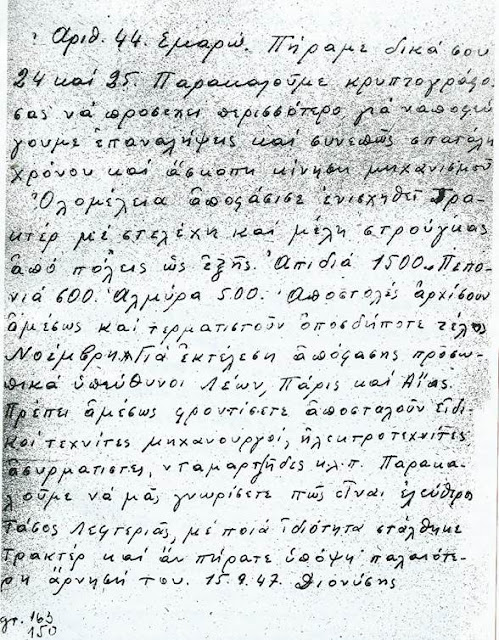 Αριθ. 44. Εμαρώ. Πήραμε δικά σου
24 καί 25. Παρακαλοῦμε κρυπτογράφο
σας νά προσέχει περισσότερο γιά ν'αποφεύ
γουμε ἐπαναλήψεις καί συνεπῶς σπατάλη
χρόνου καί ἄσκοπη κίνηση μηχανισμοῦ
Ὁλομέλεια ἀποφάσισε ἐνισχηθεῖ Τρα-
κτέρ μέ στελέχη καί μέλη στρούγκας
ἀπό πόλεις ὡς ἑξῆς. Ἀπιδιά 1500. Πεπο-
νιά 600. Ἀλμύρα 500. Ἀποστολές ἀρχίσουν
ἀμέσως καί τερματιστοῦν ὁπωσδήποτε τέλος
Νοέμβρη. Γιά ἐκτέλεση ἀπόφασης προσω-
πικά ὑπεύθυνοι Λέων, Πάρις καί Αἴας.
Πρέπει ἀμέσως φροντίσετε ἀποσταλοῦν εἰδι-
κοί τεχνίτες μηχανουργοί, ἠλεκτροτεχνίτες
ἀσυρματιστες, νταμαρτζῆδες κ.λ.π. Παρακα-
λοῦμε νά μᾶς γνωρίσετε πῶς εἶναι ἐλεύθερος
Τάσος Λευτεριᾶς, μέ ποιά ἰδιότητα στάλθηκε
Τρακτέρ καί ἄν πήρατε ὑπόψη παλαιότε-
ρη ἄρνησή του. 15.9.47. Διονύσης
γτ. 163
150